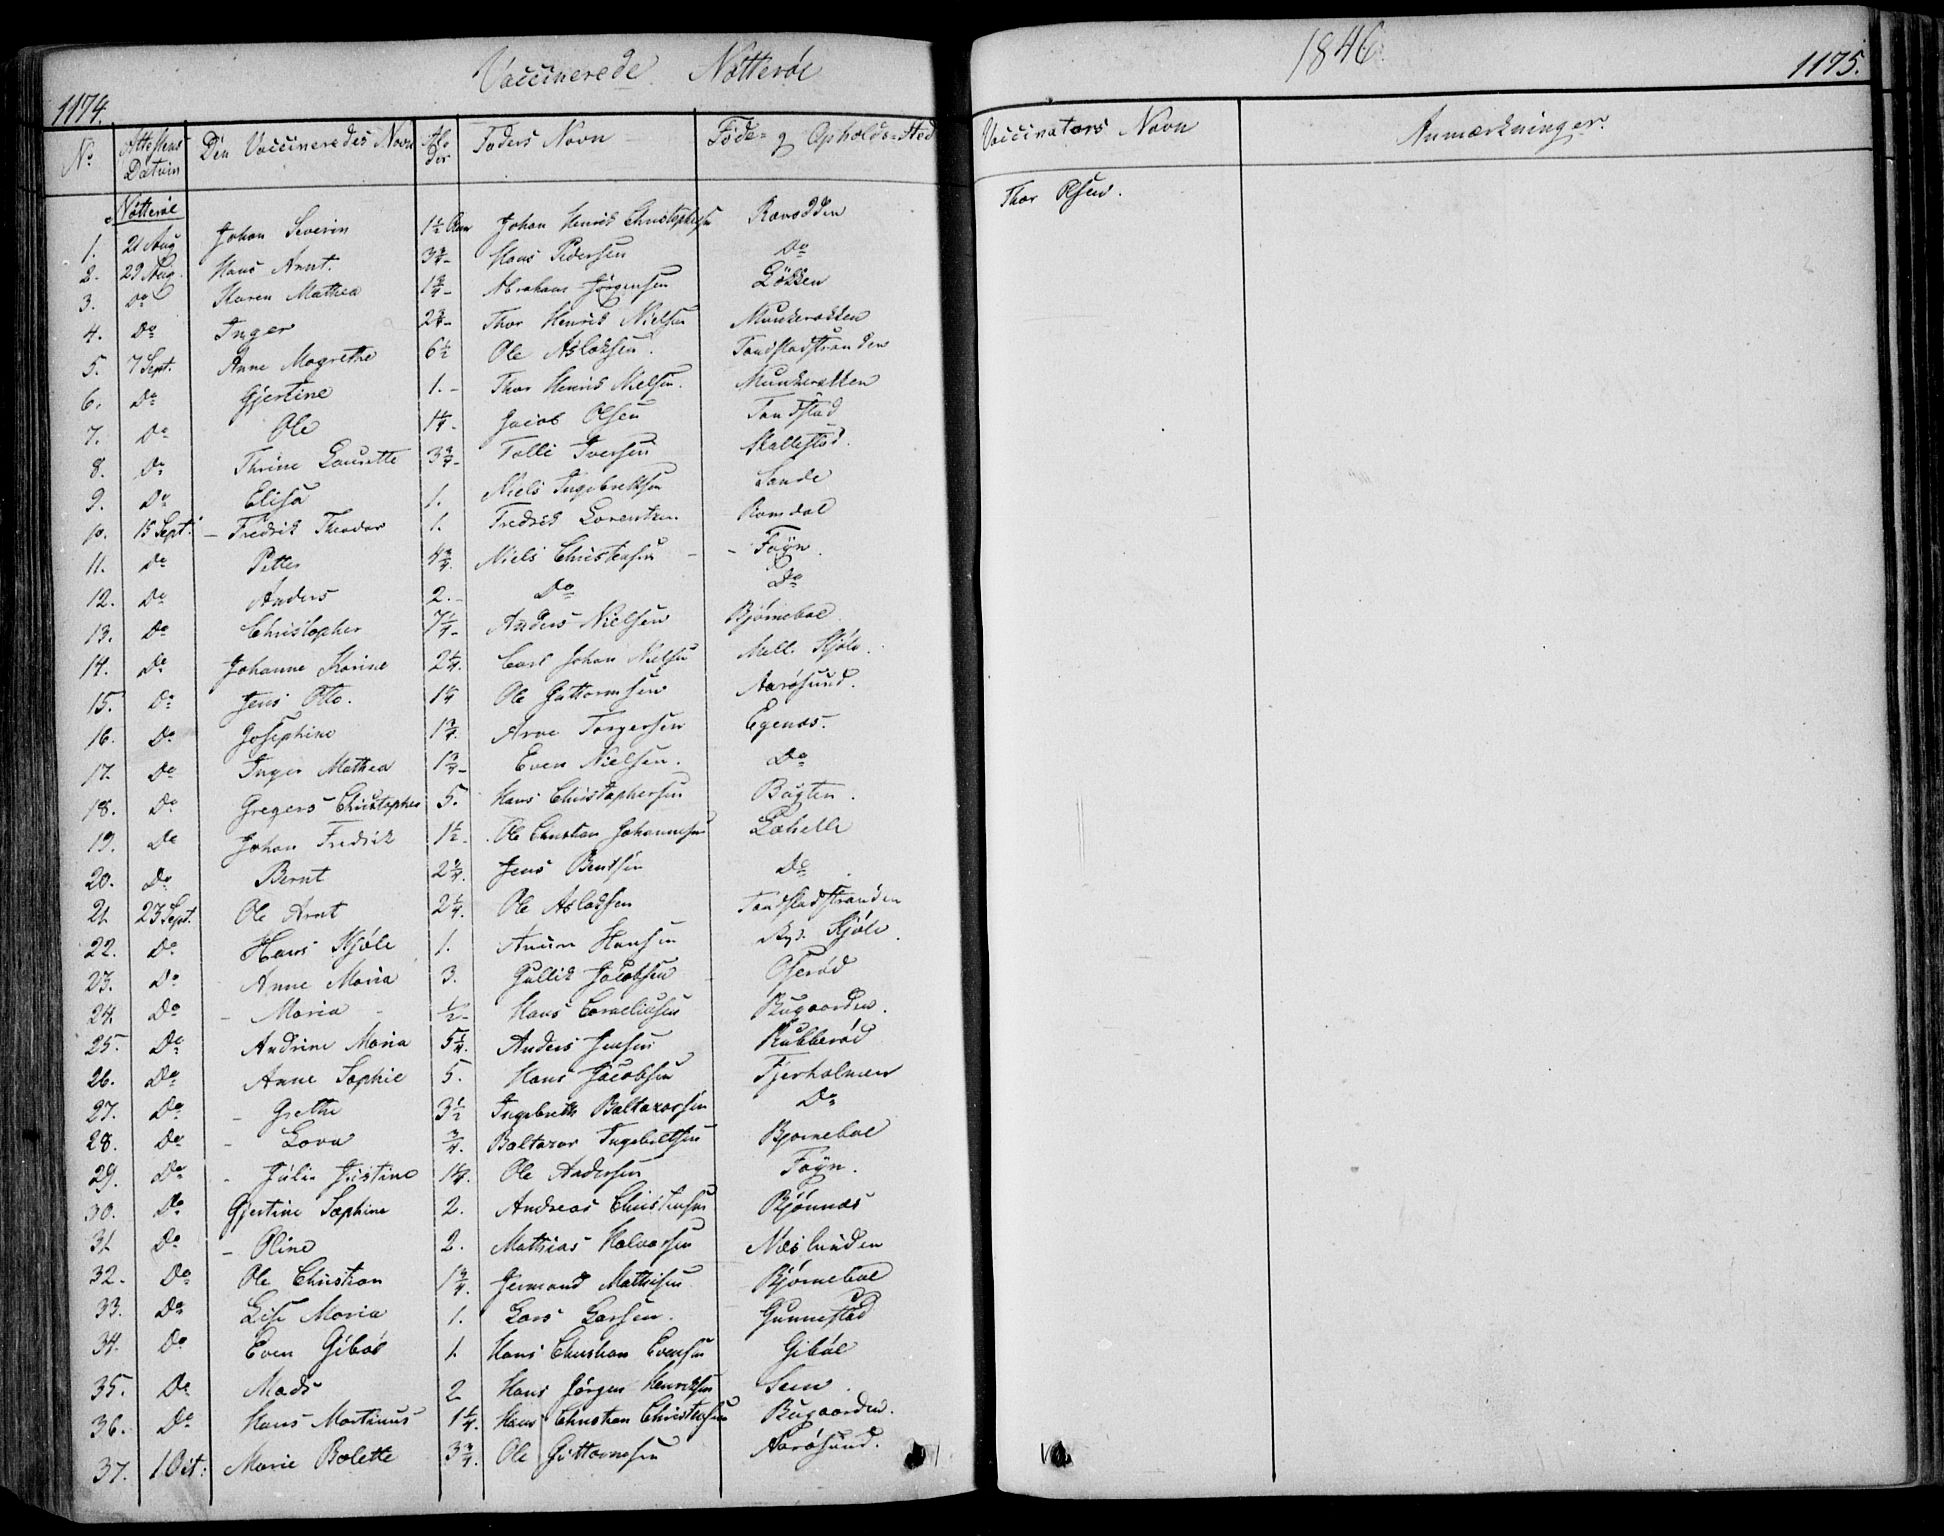 Vaccinerede Nøtterøe
1174.
No. Attestens Datum Den Vaccineredes Navn Alder Faders Navn Føde- og Opholds-Sted
Nøtterøe
1. 21 Aug Johan Severin 1½ Johan Henrik Christophersen Ravnodden
2. 29 Aug. Hans Arnt. 3¾- Hans Pedersen Do
3. Do Karen Mathea 1¾- Abraham Jørgensen Løkken
4. Do Inger Thor Henrik Nielsen Munkerekken
5. 7 Sept. Anne Magrethe 6½ Ole Aslaksen. Tandstadstranden
6. Do Gjertine 1.- Thor Henrik Nielsen. Munkerekken
7. Do Ole 1¼- Jacob Olsen Tandstad
8. Do Thrine Laurette 3¾- Tolle Iversen Skallestad.
9. Do Elisa 1. Niels Ingebretsen Sande
10. 15 Sept. - Fredrik Theodor 1. Fredrik Lorentzen Romdal
11. Do Petter 4¾. Niels Christensen - - Føyn.
12. Do Anders 2.- Do Do
13. Do Christopher 7¼- Anders Nielsen Bjørnebøe
14. Do Johanne Karine 2¼. Carl Johan Nielsen Mell. Kjøle.
15. Do Jens Otto. 1¼ Ole Guttormsen Aarøsund.
16. Do Josephine 1¾. Arve Torgersen Egenæs.
17. Do Inger Mathea 1¾- Even Nielsen. Do
18. Do Gregers Christopher 5. Hans Christophersen Bugten.
19. Do Johan Fredrik 1½- Ole Christian Johannesen Lahelle
20. Do Bernt 2¾. Jens Bentsen Do
21. 23 Sept. Ole Arnt 2¼. Ole Aslaksen Tandstadstranden
22. Do Hans Kjøle 1. Hansen Kjøle.
23. Do Anne Maria 3. Gullik Jacobsen Oserød
24. Do - Maria - ½- Hans Corneliusen Bugaarden.
25. Do Andrine Maria 5¼. Anders Jensen Rubberød
26. Do Anne Sophie 5. Hans Jacobsen Fjerholmen
27. Do - Grethe 3½ Ingebreth Baltazarsen Do
28. Do - Lova ¾. Baltazar Ingebretsen Bjørnebøe
29. Do - Julie Justine 1¼. Ole Andersen Føyn.
30. Do Gjertine Sophine 2. Andreas Christensen Bjønnæs
31 Do - Oline 2. Mathias Halvorsen Næslunden
32. Do Ole Christian 1¾. Jermand Mathisen Bjørnebøe
33. Do Lise Maria 1. Lars Larsen. Gunnestad
34. Do Even Gibøe 1. Hans Christian Evensen Gibøe
35. Do Mads 2 Hans Jørgen Henriksen Sem.
36. Do Hans Martinus 1¼. Hans Christian Christensen Bugaarden.
37. 1 Oct: Marie Bolette 3¾. Ole Guttormsen Aarøsund.
1846.
1175.
Vaccinators Navn Anmærkninger.
Thor Olsen.